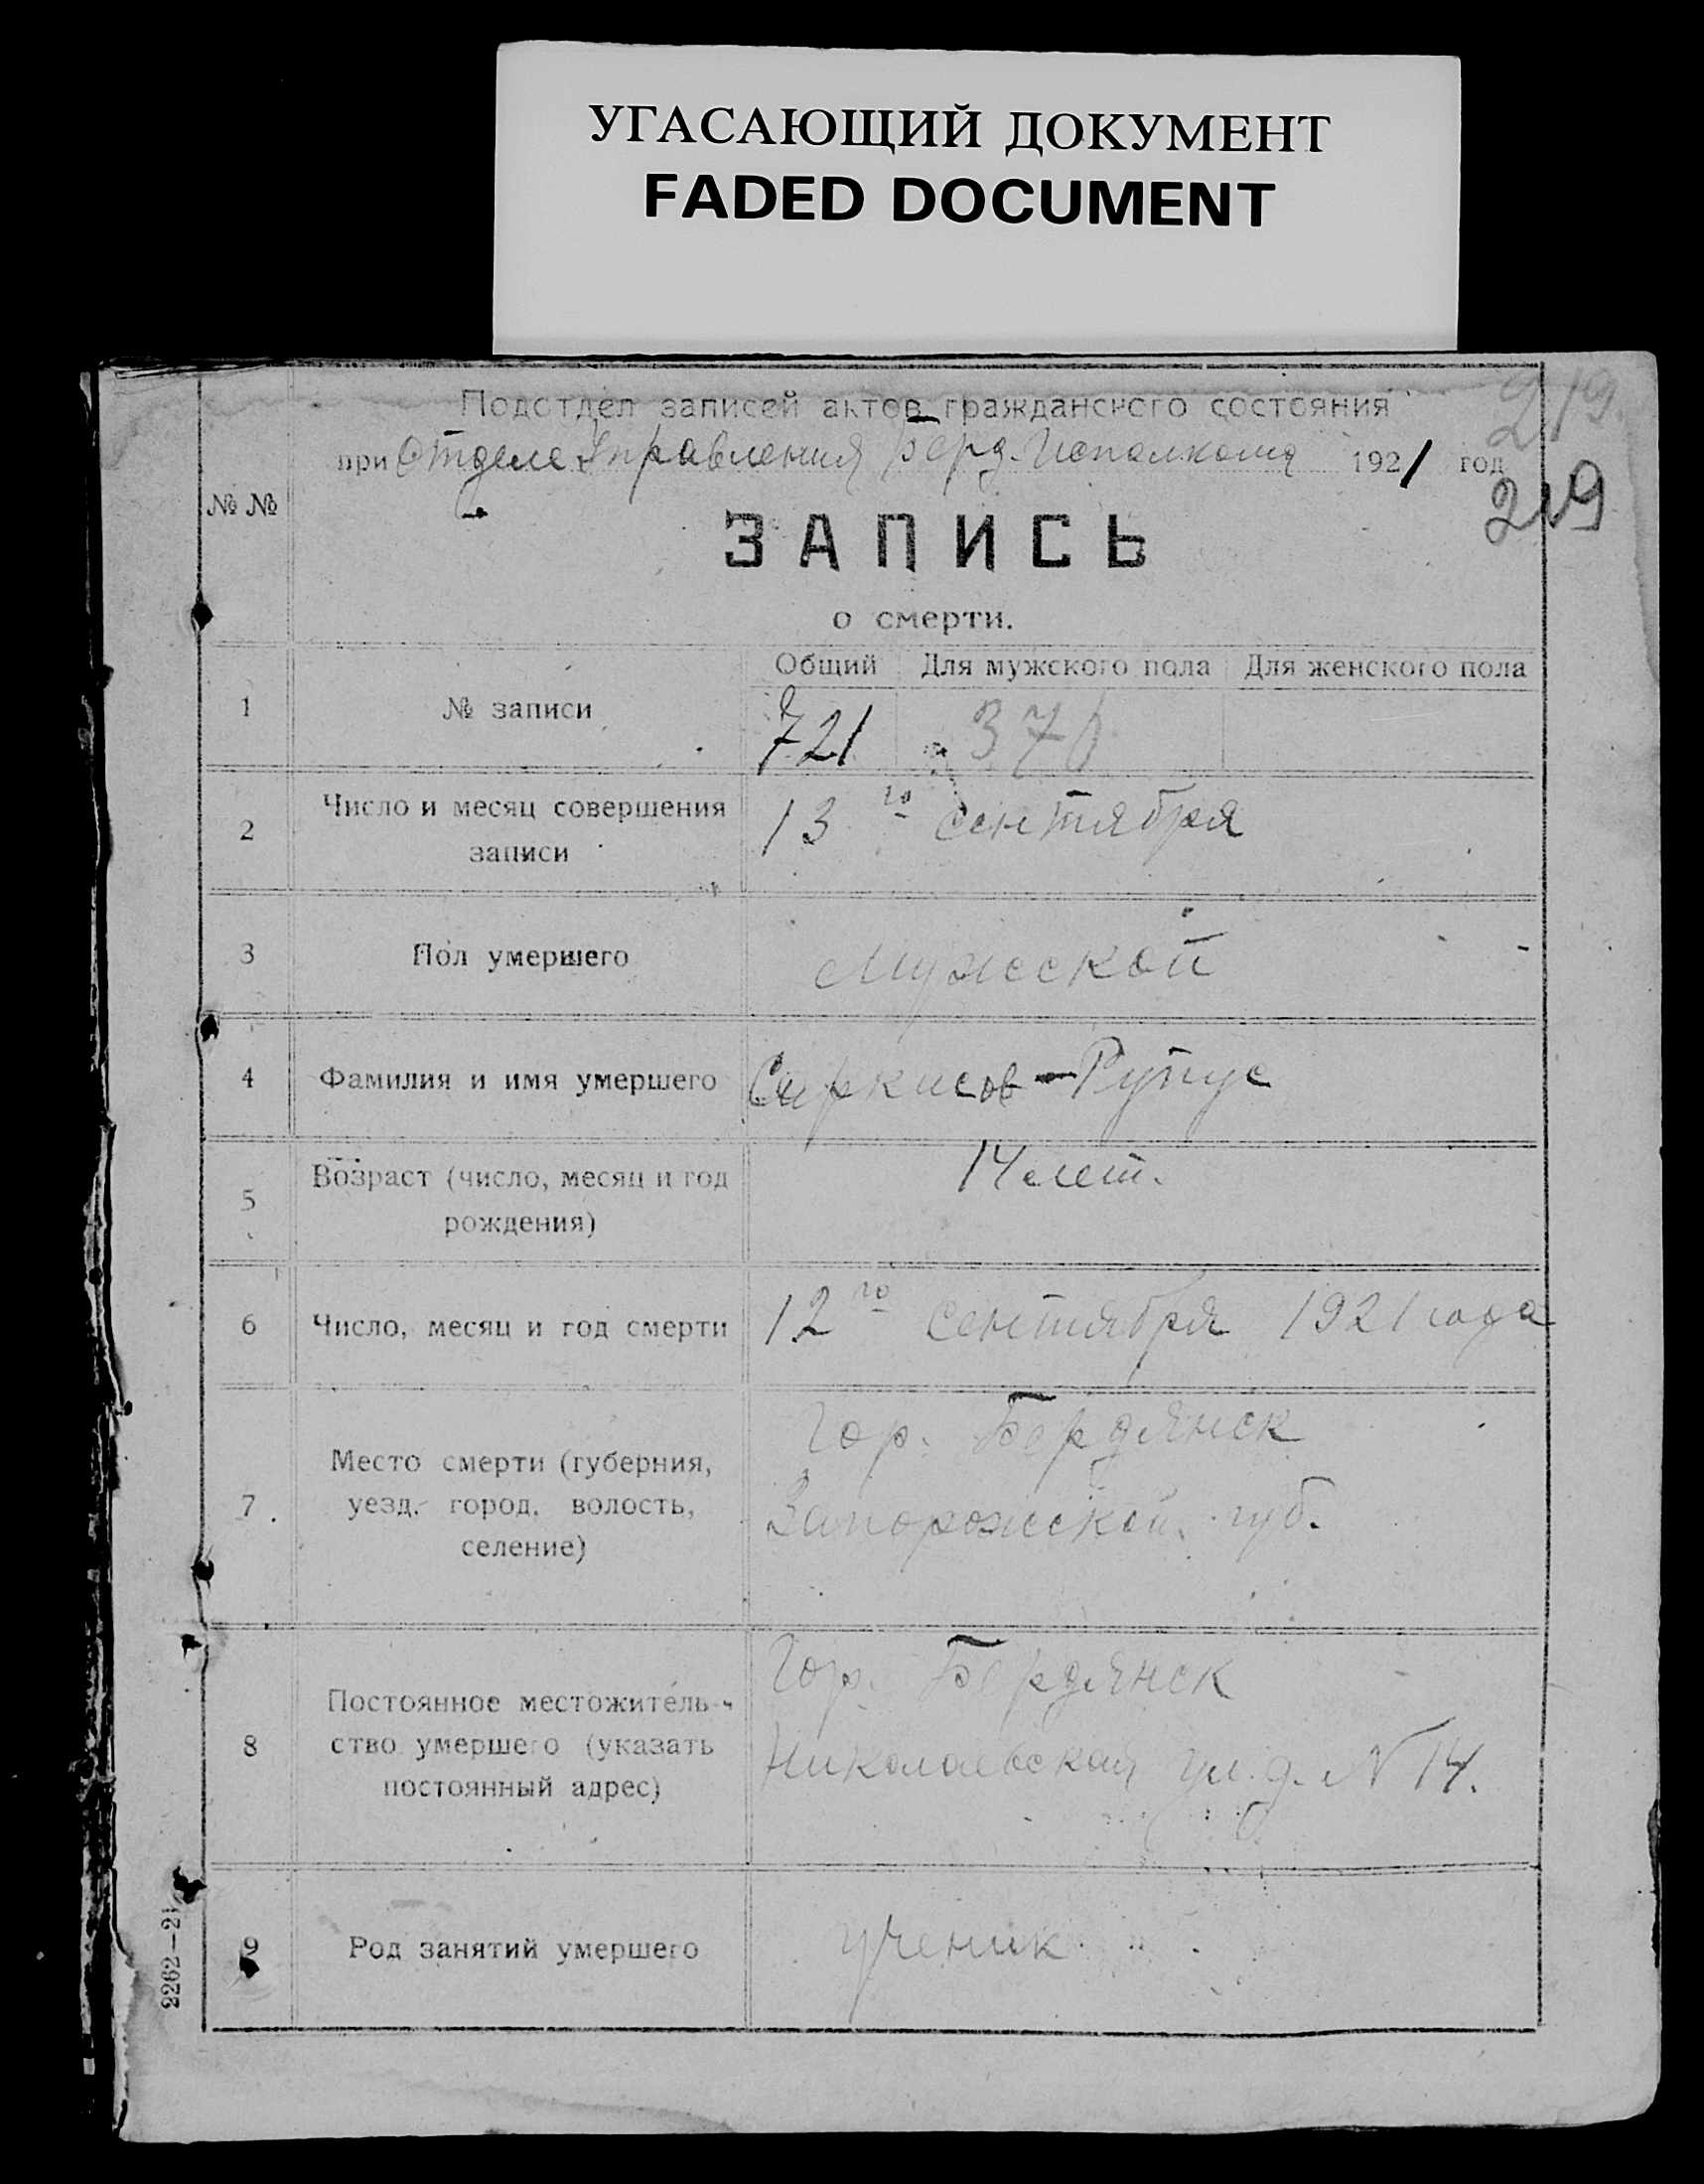 УГАСАЮЩИЙ ДОКУМЕНТ
FADED DOCUMENT
219
Подотдел записей актов гражданского состояния
при Отделе Управления Берд. Исполкома 1921 год
219
№ №
ЗАПИСЬ
о смерти.
Общий Для мужского пола Для женского пола
1 № записи 721 376
2 Число и месяц совершения
записи
13го Сентября
3 Пол умершего Мужской
4 Фамилия и имя умершего Сиркисов-
5 Возраст (число, месяц и год
рождения)
14 лет.
6 Число, месяц и год смерти 12го Сентября 1921 года
7 Место смерти (губерния,
уезд, город, волость,
селение)
Гор. Бердянск
Запорожской губ.
8 Постоянное местожитель-
ство умершего (указать
постоянный адрес)
Гор. Бердянск
Николаевская ул. д. N 14.
9 Род занятий умершего ученик
2262—21